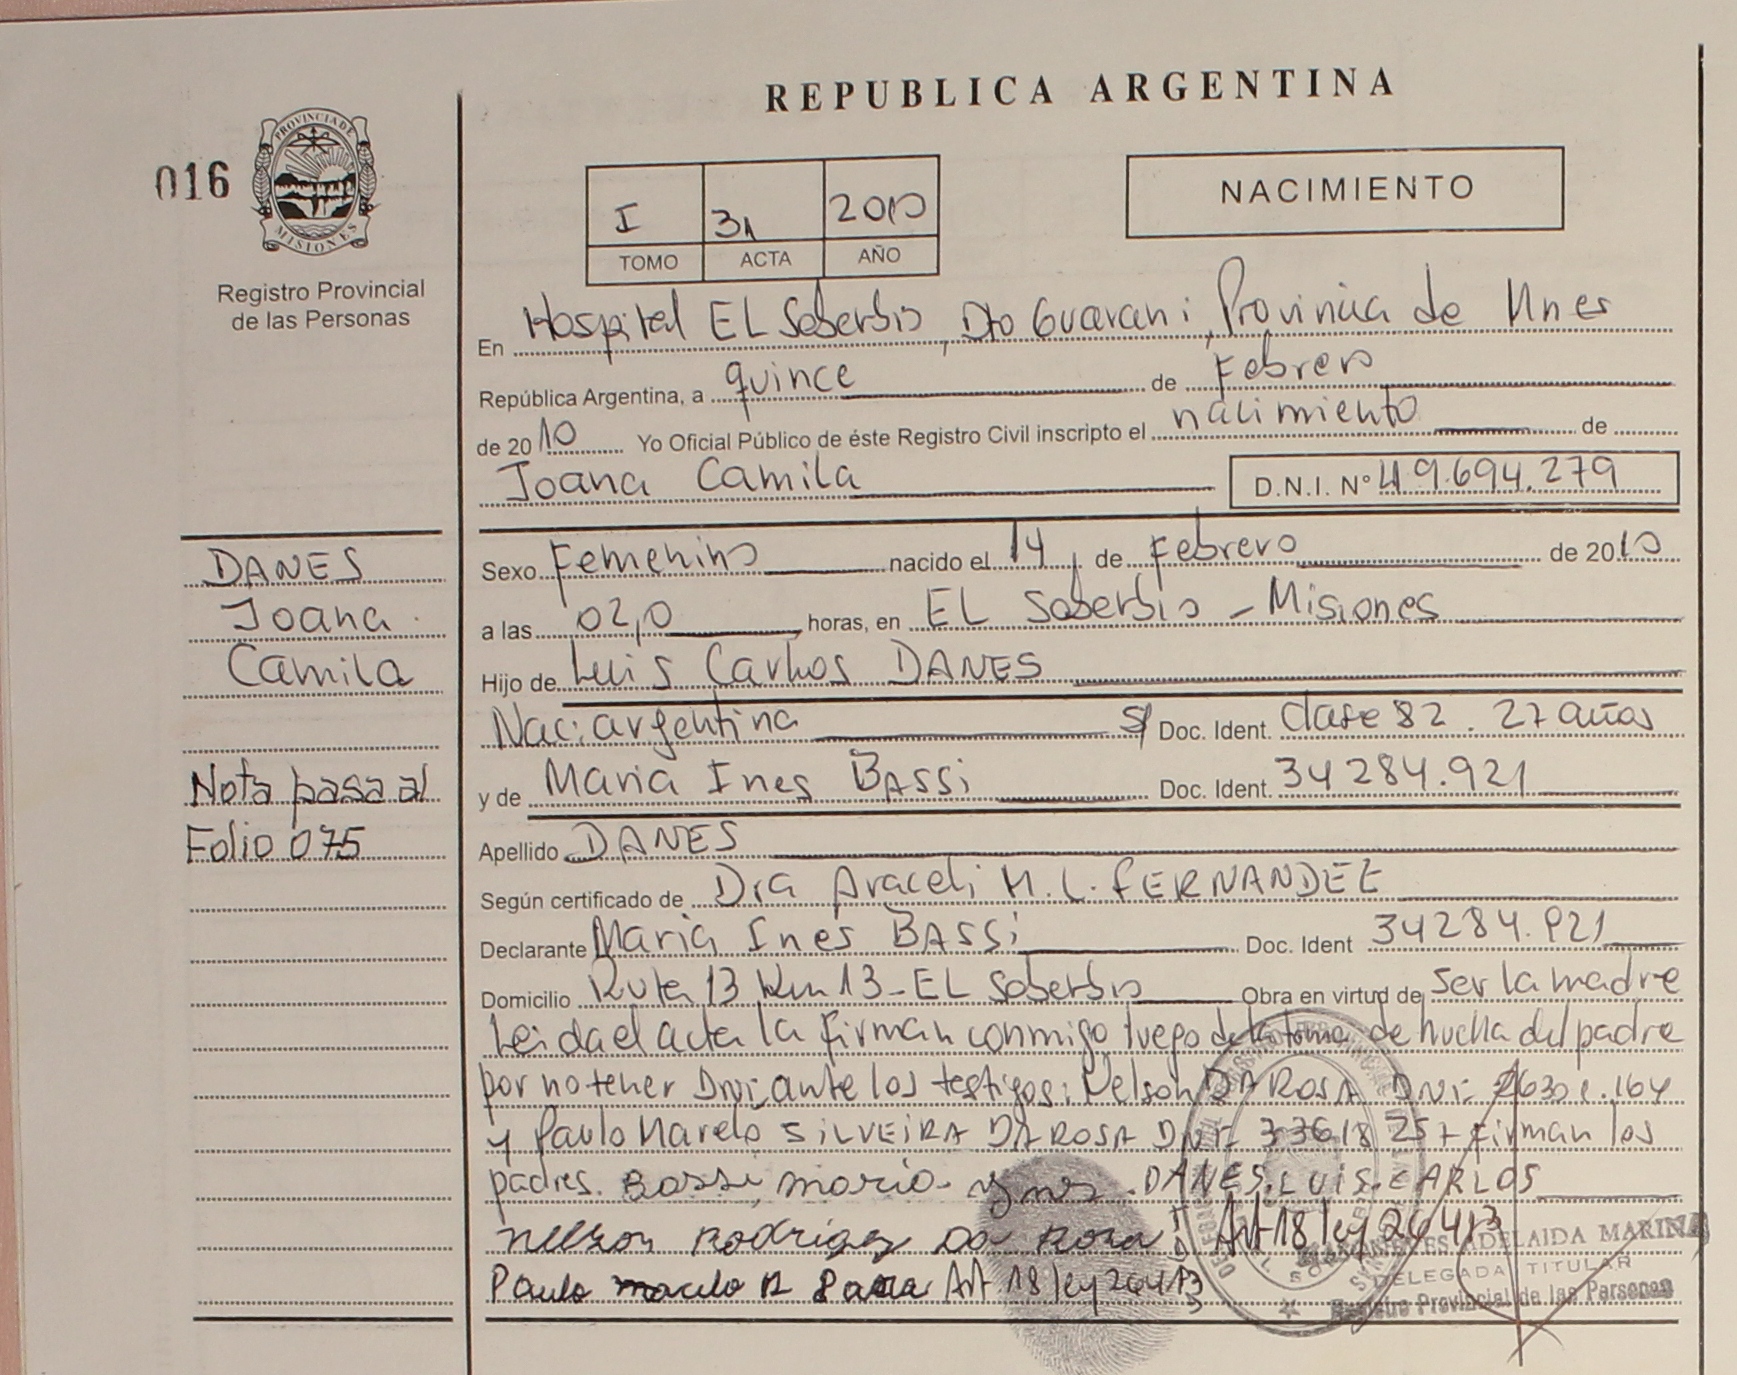 REPUBLICA ARGENTINA
016
PROVINCIA DE
MISIONES
Registro Provincial
de las Personas
I 31 2010
TOMO ACTA AÑO
NACIMIENTO
En Hospital EL Soberbio, Dto Guarani, Provincia de Mnes
República Argentina, a quince de Febrero
de 2010 Yo Oficial Público de éste Registro Civil inscripto el nacimiento de
Joana Camila D.N.I. Nº 49.694.279
DANES
Joana
Camila
Nota pasa al
Folio 075
Sexo Femenino nacido el 14, de Febrero de 2010
a las 02,0 horas, en EL Soberbio - Misiones
Hijo de Luis Carlos DANES
Nac: argentina S/ Doc. Ident. Clase 82. 27 años
y de Maria Ines BASSi Doc. Ident. 34284.921
Apellido DANES
Según certificado de Dra Araceli M.L. FERNANDEZ
Declarante Maria Ines BASSi Doc. Ident 34284.921
Domicilio Ruta 13 Km 13 - EL Soberbio Obra en virtud de Ser la madre
Leida el acta la Firman conmigo luego de la toma de huella del padre
por no tener DNI; ante los testigos: Nelson DA ROSA DNI:
y Paulo Marelo SILVEIRA DA ROSA DNI- Firman los
padres. Bassi, maria ynes. DANES. LUIS. CARLOS
Nelson Rodrigez Da Rosa Art 18 ley 26413
Paulo Art 18 ley 26413
ADELAIDA MARINA
DELEGADA TITULAR
Registro Provincial de las Personas